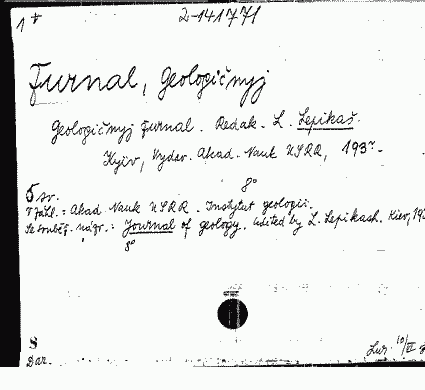 1 t
2-141771
Žurnal, Geologičnyj
Geologičnyj žurnal. Redak. L. Lepikaš.
Kyiv, Vydav. Akad. Nauk USRR, 193?-
8°
5 sv.
V záhl.: Akad Nauk USRR. Instytut geologii.
Se souběž. názv.: Journal of geology. Edited by L. Lepikash. Kiev, 193
8°
S
Dar.
Lur. 10/VI